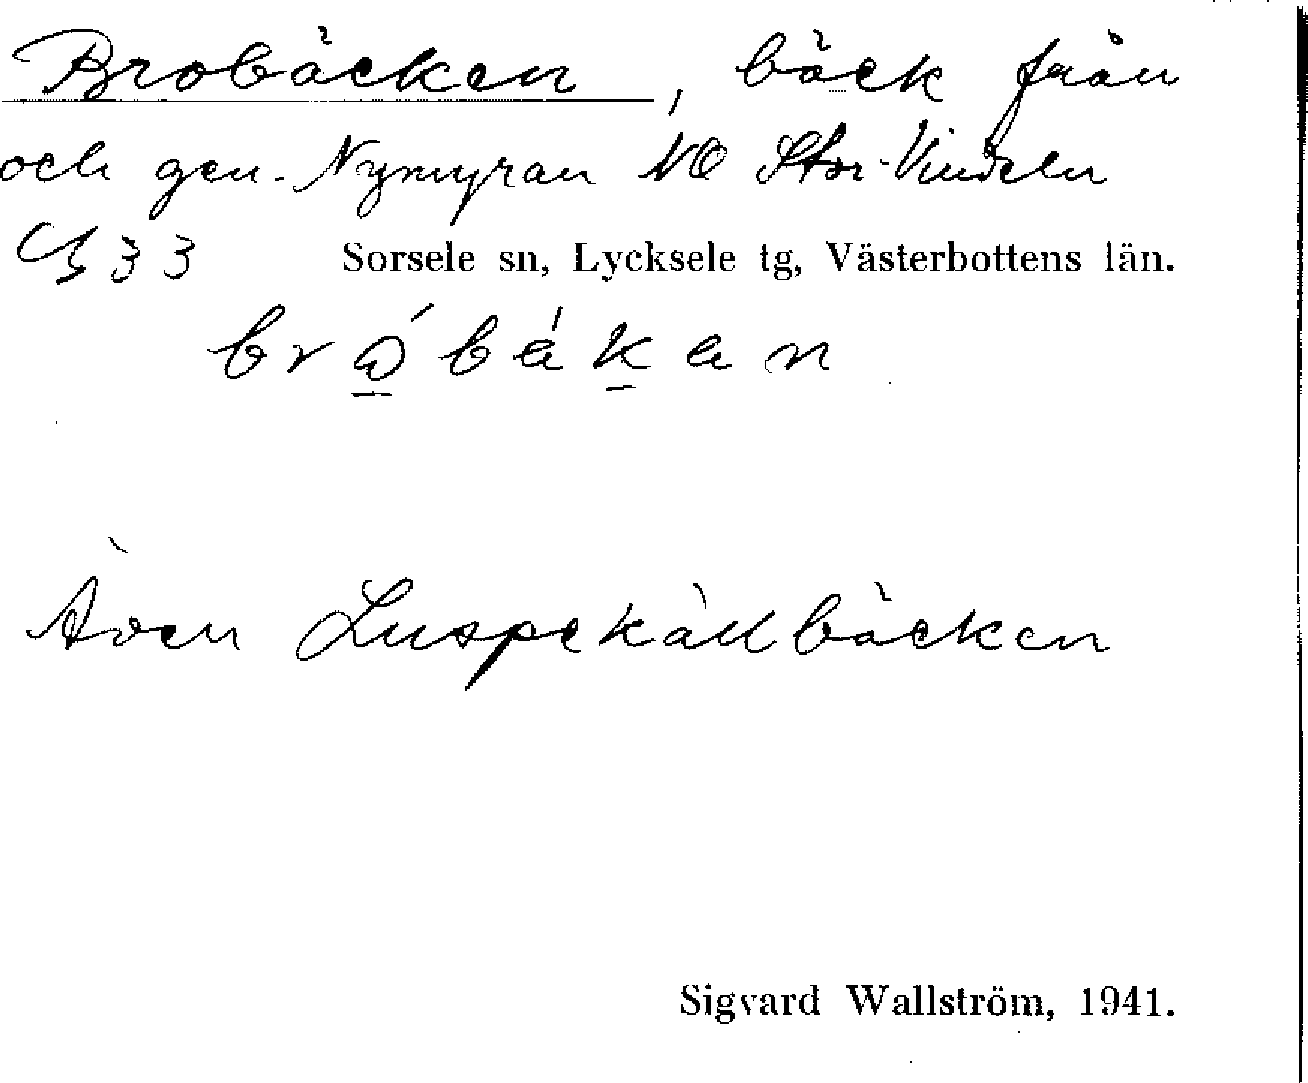 Brobäcken, bäck från
och gen. Nymyran NO Stor-Vindeln
33 Sorsele sn, Lycksele tg, Västerbottens län.
Även Luspekällbäcken
Sigvard Wallström, 1941.